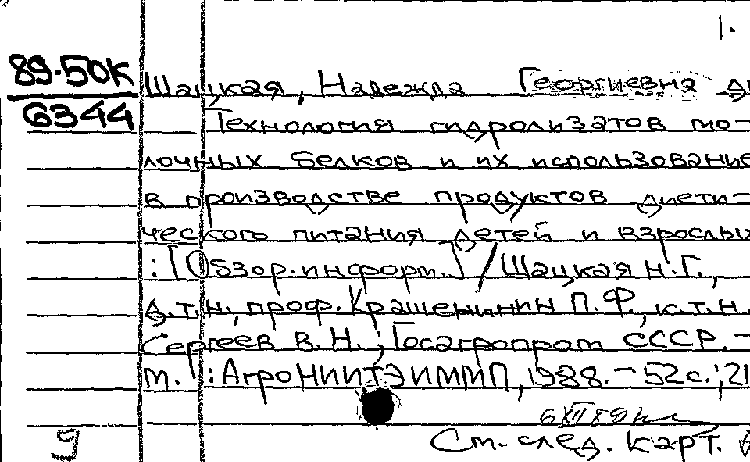 1.
89-50К Шацкая, Надежда Георгиевна
6344 Технология гидролизатов мо-
лочных белков и их использование
в производстве продуктов диети-
ческого питания детей и взрослых
: [Обзор. информ.] / Шацкая Н.Г.,
д.т.н., проф. Крашенинин П.Ф., к.т.н.
Сергеев В.Н.; Госагропром СССР. -
М.: АгроНИИТЭИММП, 1988. - 52с.; 21
9 См. след. карт.